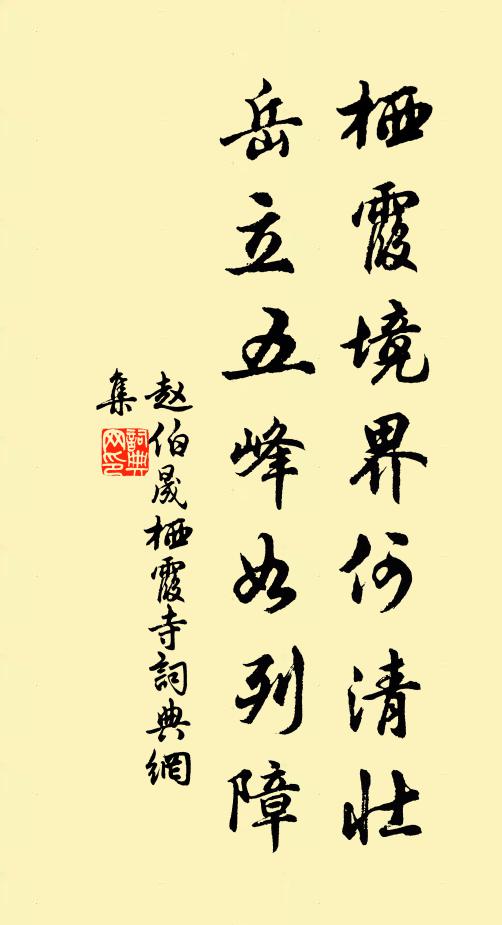 栖霞境界何清壮
岳立五峰如列障
赵伯晟栖霞寺詞典網
集
詞典网印